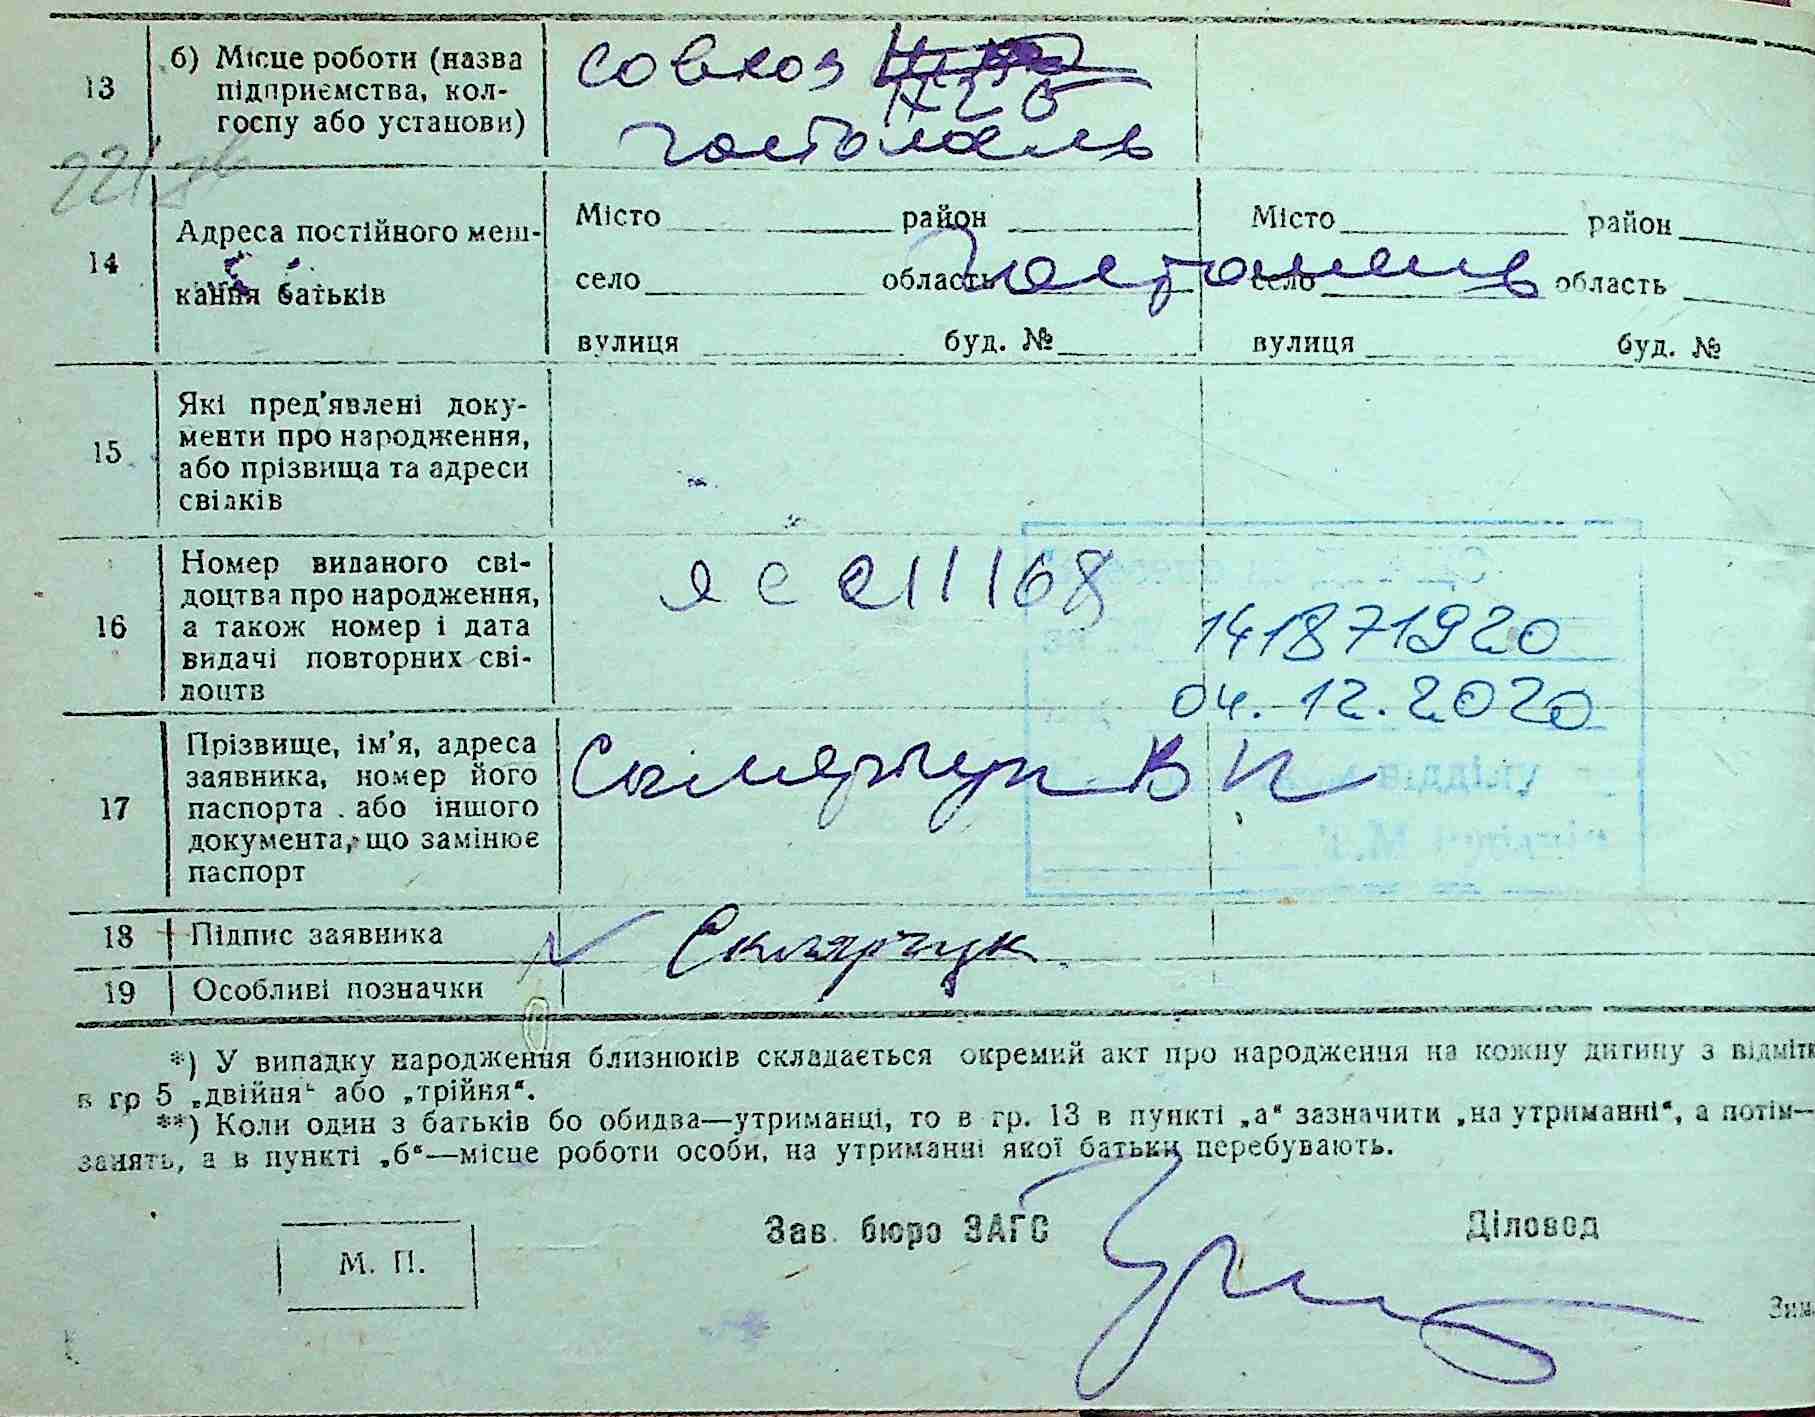 13
б) Місце роботи (назва
підприємства, кол-
госпу або установи)
совхоз
№ 26
гостомель
221
14
Адреса постійного меш-
кання батьків
Місто район
село область
вулиця буд. №
Гостомель
Місто район
село область
вулиця буд. №
15
Які пред'явлені доку-
менти про народження,
або прізвища та адреси
свідків
16
Номер виданого сві-
доцтва про народження,
а також номер і дата
видачі повторних сві-
доцтв
ЯС 011168
141871920
04.12.2020
відділу
17
Прізвище, ім'я, адреса
заявника, номер його
паспорта або іншого
документа, що замінює
паспорт
Склярчук В И
18
Підпис заявника
Склярчук
19
Особливі позначки
*) У випадку народження близнюків складається окремий акт про народження на кожну дитину з відмітк
в гр 5 „двійня“ або „трійня“.
**) Коли один з батьків бо обидва—утриманці, то в гр. 13 в пункті „а“ зазначити „на утриманні“, а потім—
занять, а в пункті „б“—місце роботи особи, на утриманні якої батьки перебувають.
Зав. бюро ЗАГС
Діловод
М. П.